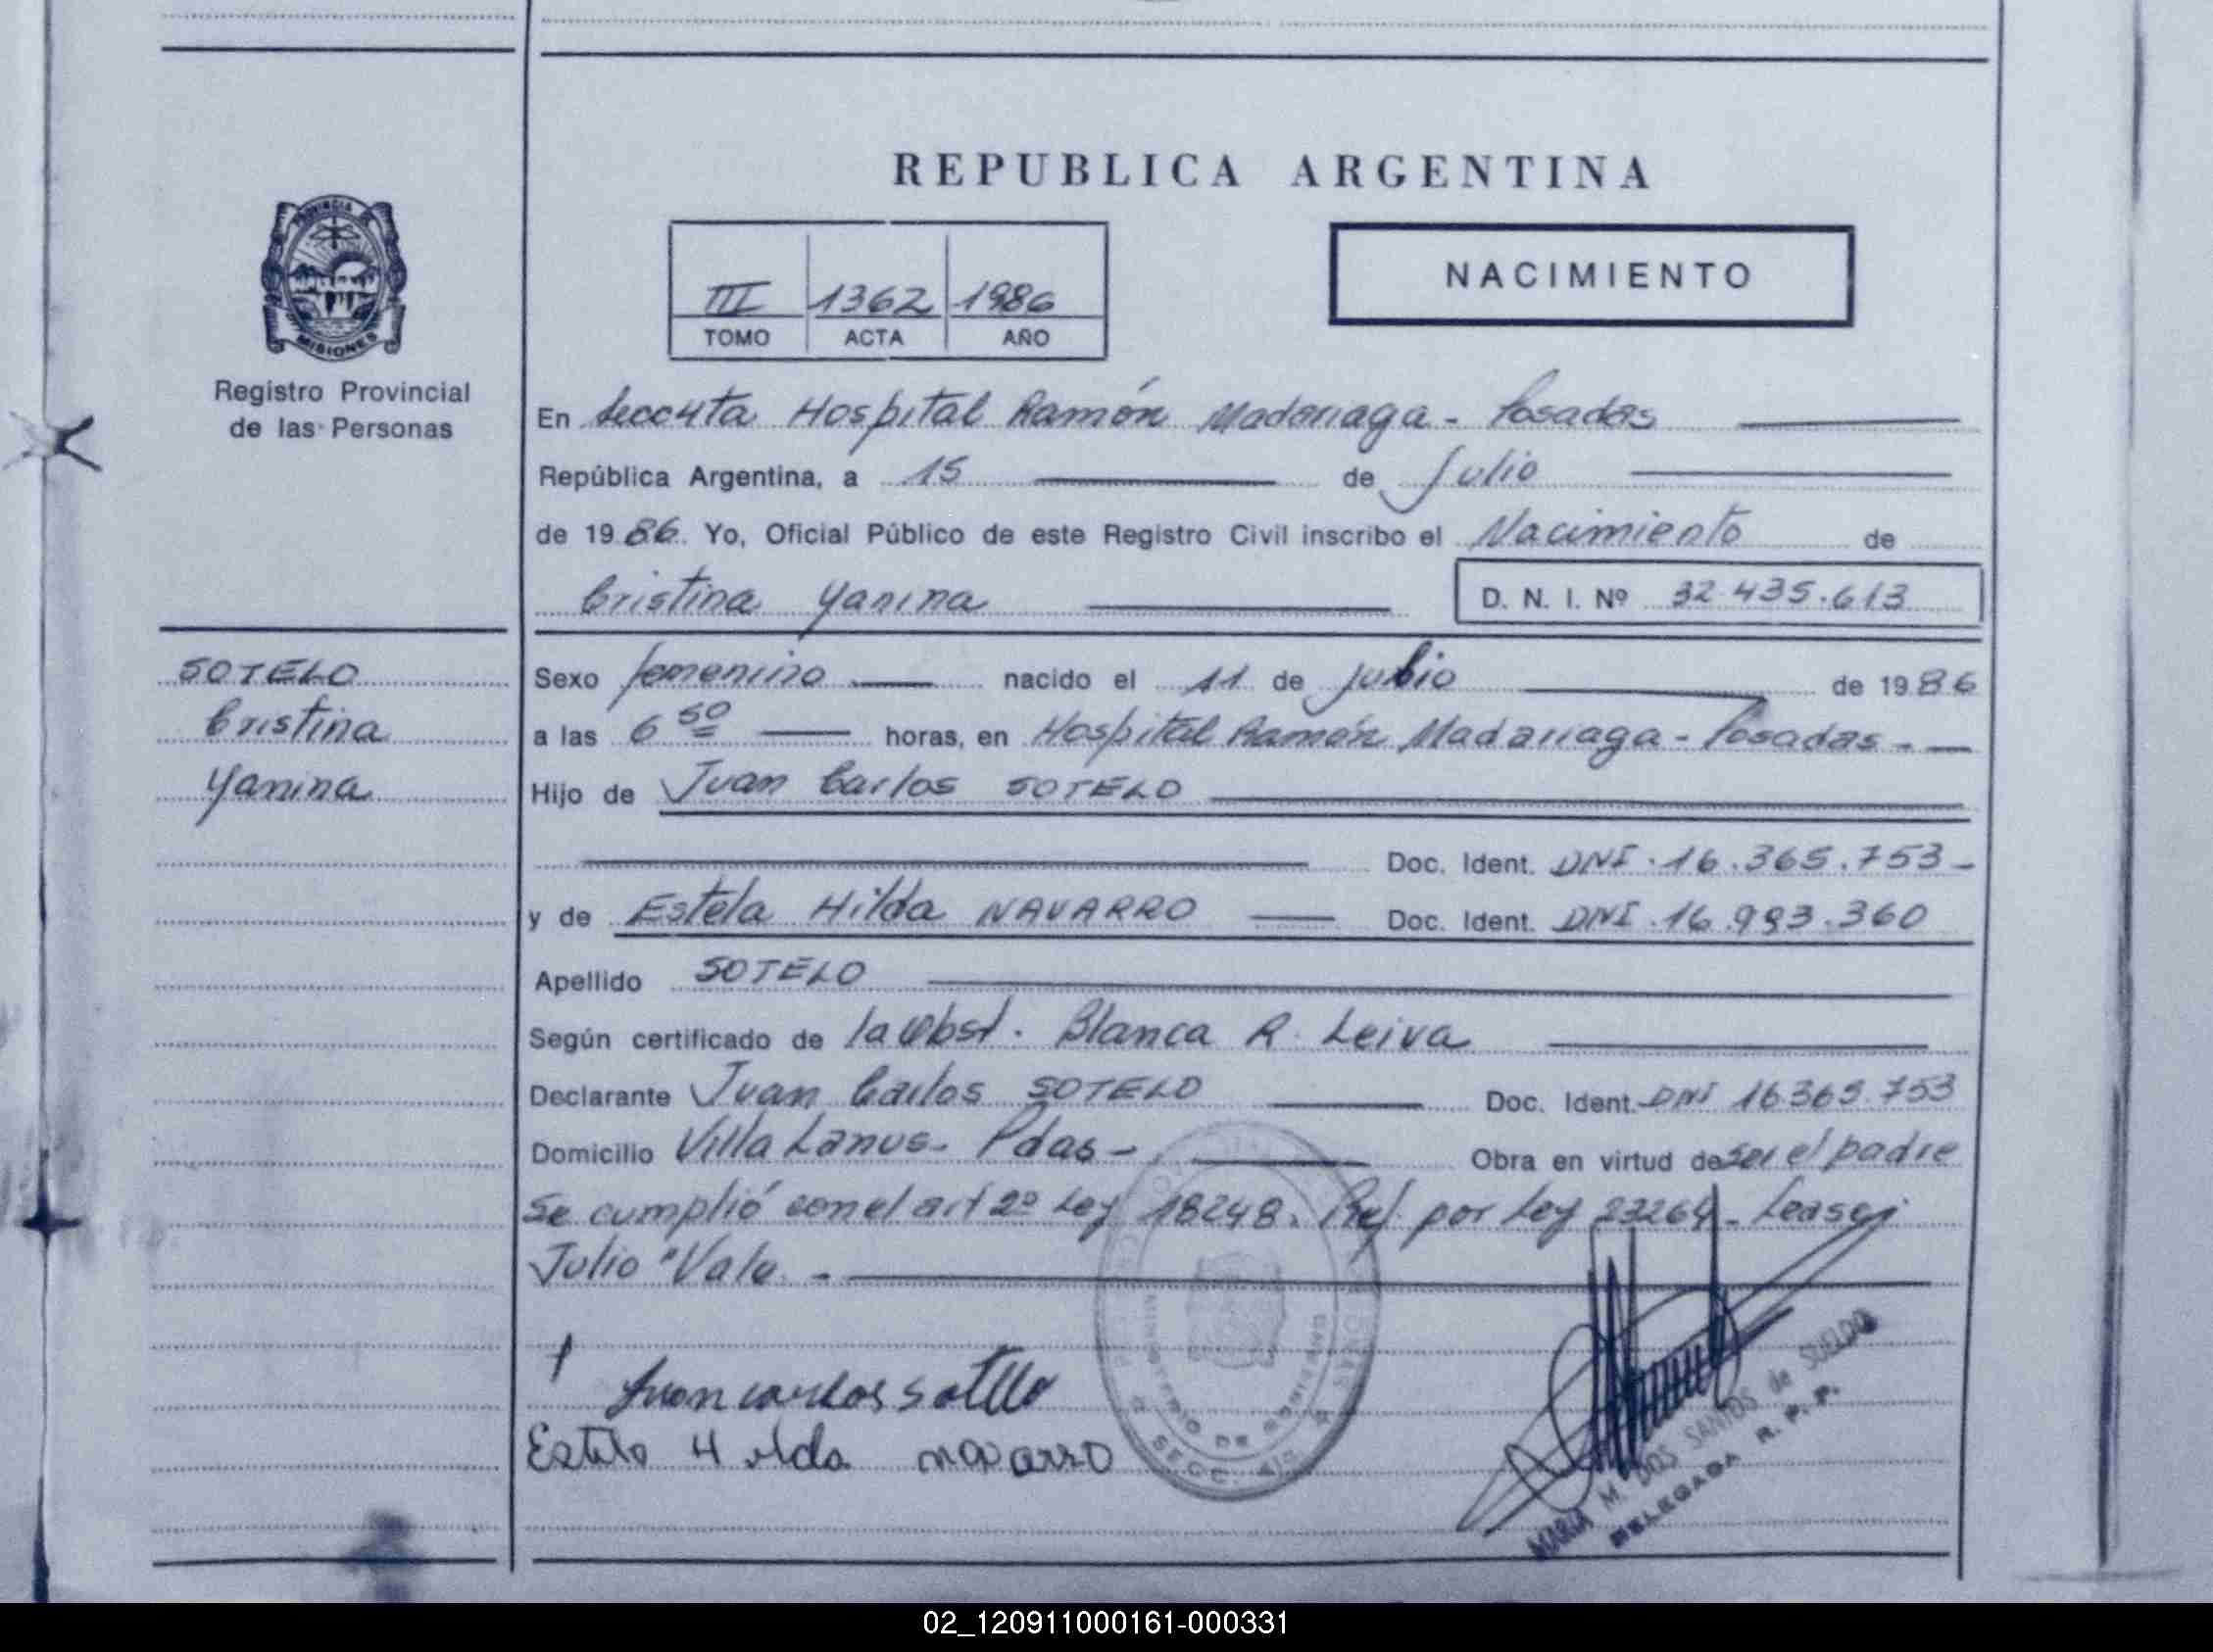 REPUBLICA ARGENTINA
PROVINCIA DE
MISIONES
Registro Provincial
de las Personas
III 1362 1986
TOMO ACTA AÑO
NACIMIENTO
En Secc 4ta Hospital Ramón Madariaga - Posadas
República Argentina, a 15 de Julio
de 1986. Yo, Oficial Público de este Registro Civil inscribo el Nacimiento de
Cristina Yanina D. N. I. Nº 32.435.613
SOTELO
Cristina
Yanina
Sexo femenino nacido el 11 de Julio de 1986
a las 6 50 horas, en Hospital Ramón Madariaga - Posadas -
Hijo de Juan Carlos SOTELO
Doc. Ident. DNI. 16.365.753 -
y de Estela Hilda NAVARRO Doc. Ident. DNI. 16.993.360
Apellido SOTELO
Según certificado de la Obst. Blanca R. Leiva
Declarante Juan Carlos SOTELO Doc. Ident. DNI 16365.753
Domicilio Villa Lanus - Pdas - Obra en virtud de ser el padre
Se cumplió con el art 2º Ley 18248. Ref. por Ley 23264 -
Julio "Vale -
Juan carlos sotelo
Estela Hilda navarro
SECC. 4ta
MARIA M. DOS SANTOS de SUELDO
DELEGADA R. P. P.
02_120911000161-000331